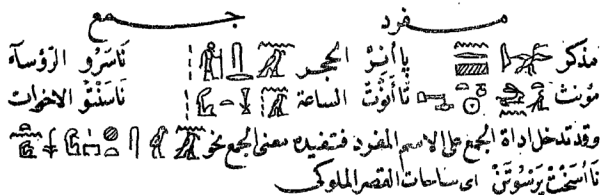 مفرد جمع
مذكر پا أنر الحجر نَاسَرُو الرؤساء
مؤنث تا أنوّت الساعة نَاسَنْتُو الاخوات
وقد تدخل اداة الجمع على الاسم المفرد فتفيده معنى الجمع نحو
نَا أُسَخْتْ پَرْسُوتَنْ اى ساحات القصر الملوكى